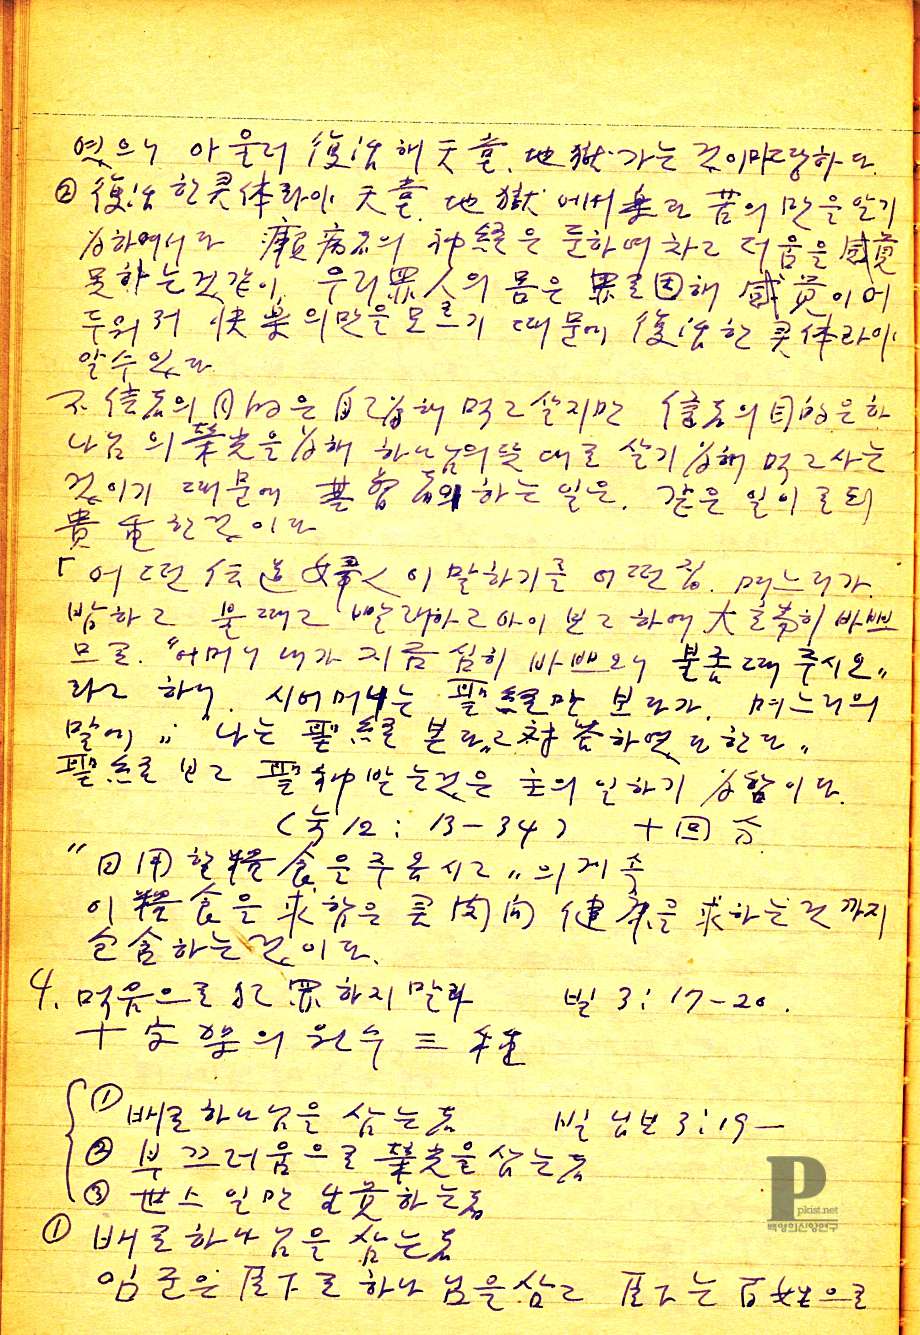 였으니 아울러 復活해 天堂, 地獄 가는 것이 마땅하다.
② 復活한 灵体라야 天堂, 地獄에서 楽과 苦의 맛을 알기
爲하여서다 癩病者의 神経은 둔하며 차고 더움을 感覚
못하는 것 같이 우리 罪人의 몸은 罪로 因해 感覚이 어
두워져 快楽의 맛을 모르기 때문에 復活한 灵体라야
알 수 있다
不信者의 目的은 自己 爲해 먹고 살지만 信者의 目的은 하
나님의 栄光을 爲해 하나님의 뜻대로 살기 爲해 먹고 사는
것이기 때문에 基督者의 하는 일은, 같은 일이로되
貴重한 것이다
「어떤 伝道婦人이 말하기를 어떤 집, 며느리가
밥하고 불 때고 빨래하고 아이 보고 하여 大端히 바쁘
므로. "어머니 내가 지금 심히 바쁘오니 불 좀 때 주시오"
라고 하니, 시어머니는 聖経만 보다가, 며느리의
말에 " 나는 聖経 본다"고 対答하였다 한다"
聖経 보고 聖神 받는 것은 主의 일하기 爲함이다.
(눅 12 : 13-34) 十回
"日用할 糧食을 주옵시고"의 계속
이 糧食을 求함은 灵肉 健康을 求하는 것까지
包含하는 것이다.
4. 먹음으로 犯罪하지 말라 빌 3 : 17-20.
十字架의 원수 三種
① 배로 하나님을 삼는 者 빌 3 : 19-
② 부끄러움으로 栄光을 삼는 者
③ 世上 일만 生覚하는 者
① 배로 하나님을 삼는 者
임군은 陛下로 하나님을 삼고 陛下는 百姓으로
P
pkist.net
백영희신앙연구